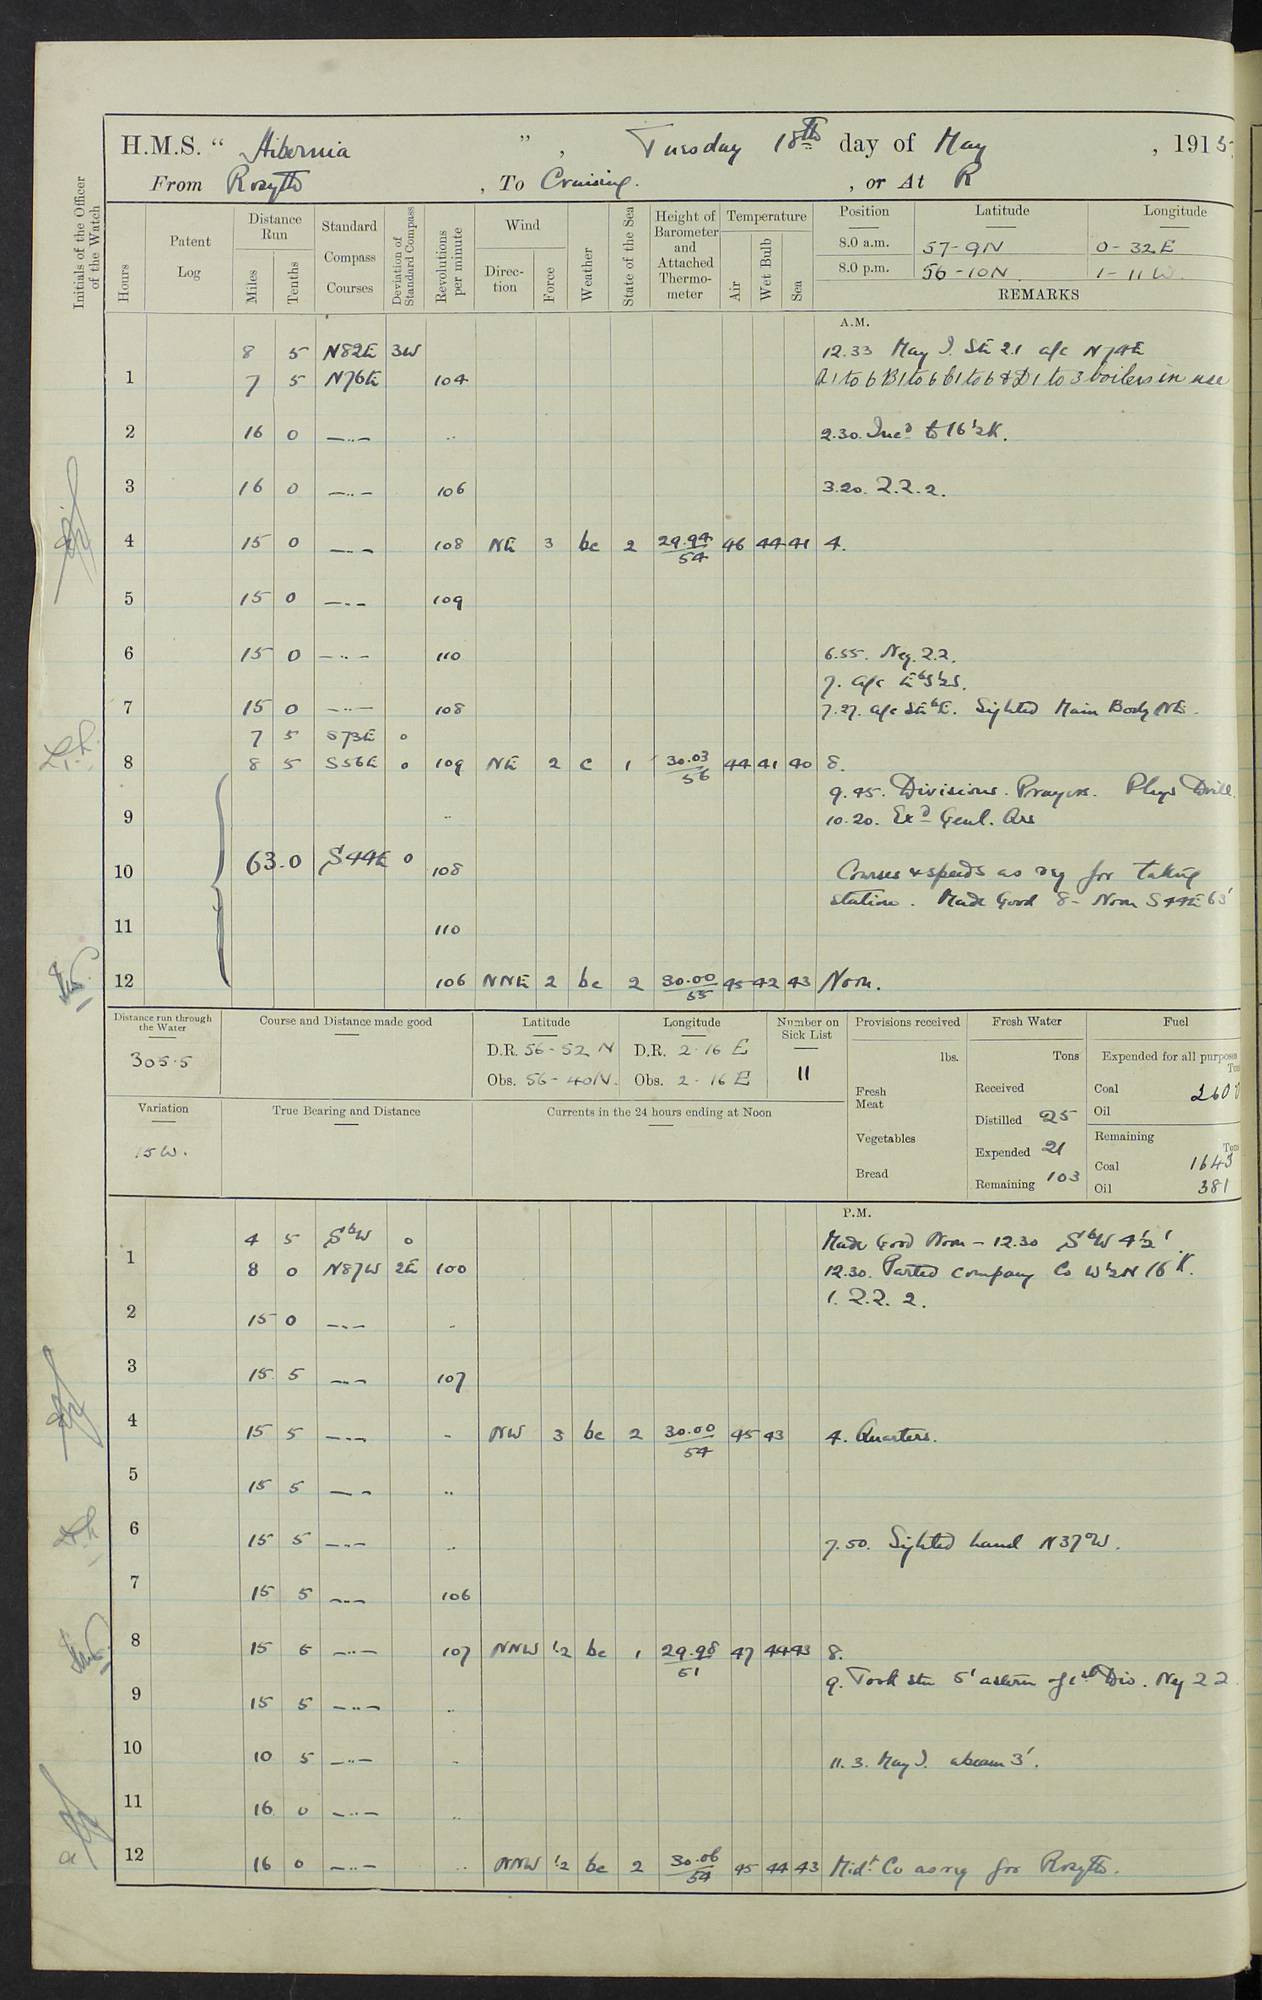 H.M.S. " Hibernia ", Tuesday 18th day of May, 1915.
From Rosyth, To Cruising., or At R
Initials of the Officer of the Watch
Hours Patent Log Distance Run Miles Tenths Standard Compass Courses Deviation of Standard Compass Revolutions per minute Wind Direction Force Weather State of the Sea Height of Barometer and Attached Thermometer Temperature Air Wet Bulb Sea Position Latitude Longitude
8.0 a.m. 57-9N 0-32E
8.0 p.m. 56-10N 1-11W
REMARKS
A.M.
8 5 N82E 3W 12.33 May I. Stn 21 a/c N74E
1 7 5 N76E 104 A1 to 6 B1 to 6 C1 to 6 & D1 to 3 boilers in use
2 16 0 —..— .. 2.30. Incd to 16½K.
3 16 0 —..— 106 3.20. Z.Z. 2.
4 15 0 —..— 108 NE 3 bc 2 29.94/54 46 44 41 4.
5 15 0 —..— 109
6 15 0 —..— 110 6.55. Neg. ZZ.
7. a/c EbS½S.
7 15 0 —..— 108 7.27. a/c SEbE. Sighted Main Body NE.
7 5 S73E 0
8 8 5 S56E 0 109 NE 2 c 1 30.03/56 44 41 40 8.
9.45. Divisions. Prayers. Phys Drill.
9 .. 10.20. Exd Genl. Qrs
10 63.0 S44E 0 108 Courses & speeds as reg for taking
station. Made Good 8 - Noon S44E 63'
11 110
12 106 NNE 2 bc 2 30.00/55 45 42 43 Noon.
Distance run through the Water 305.5
Course and Distance made good
Latitude D.R. 56-52 N Obs. 56-40N.
Longitude D.R. 2-16 E Obs. 2-16 E
Number on Sick List 11
Provisions received lbs. Fresh Meat Vegetables Bread
Fresh Water Tons Received Distilled 25 Expended 21 Remaining 103
Fuel Expended for all purposes Tons Coal 260 Oil
Remaining Tons Coal 1643 Oil 381
Variation 15W.
True Bearing and Distance
Currents in the 24 hours ending at Noon
P.M.
4 5 SbW 0 Made Good Noon - 12.30 SbW 4½'
1 8 0 N87W 2E 100 12.30. Parted company Co W½N 16K.
1. Z.Z. 2.
2 15 0 —..— ..
3 15 5 —..— 107
4 15 5 —..— .. NW 3 bc 2 30.00/54 45 43 4. Quarters.
5 15 5 —..— ..
6 15 5 —..— .. 7.50. Sighted land N37°W.
7 15 5 —..— 106
8 15 5 —..— 107 NNW ½ bc 1 29.98/51 47 44 43 8.
9. Took stn 5' astern of 1st Div. Neg ZZ
9 15 5 —..— ..
10 10 5 —..— .. 11.3. May I. abeam 3'.
11 16 0 —..— ..
12 16 0 —..— .. NNW ½ bc 2 30.06/54 45 44 43 Midt. Co as reg for Rosyth.